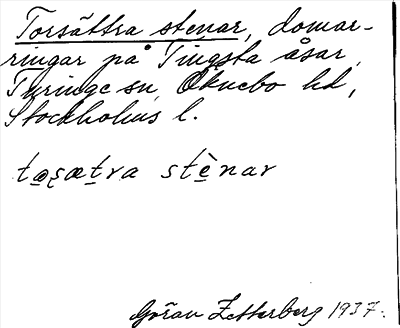 Torsättra stenar, domar-
ringar på Tingsta åsar,
Turinge sn, Öknebo hd,
Stockholms l.
to̱ʂæt̠ra stè̱nar
Göran Zetterberg 1937.